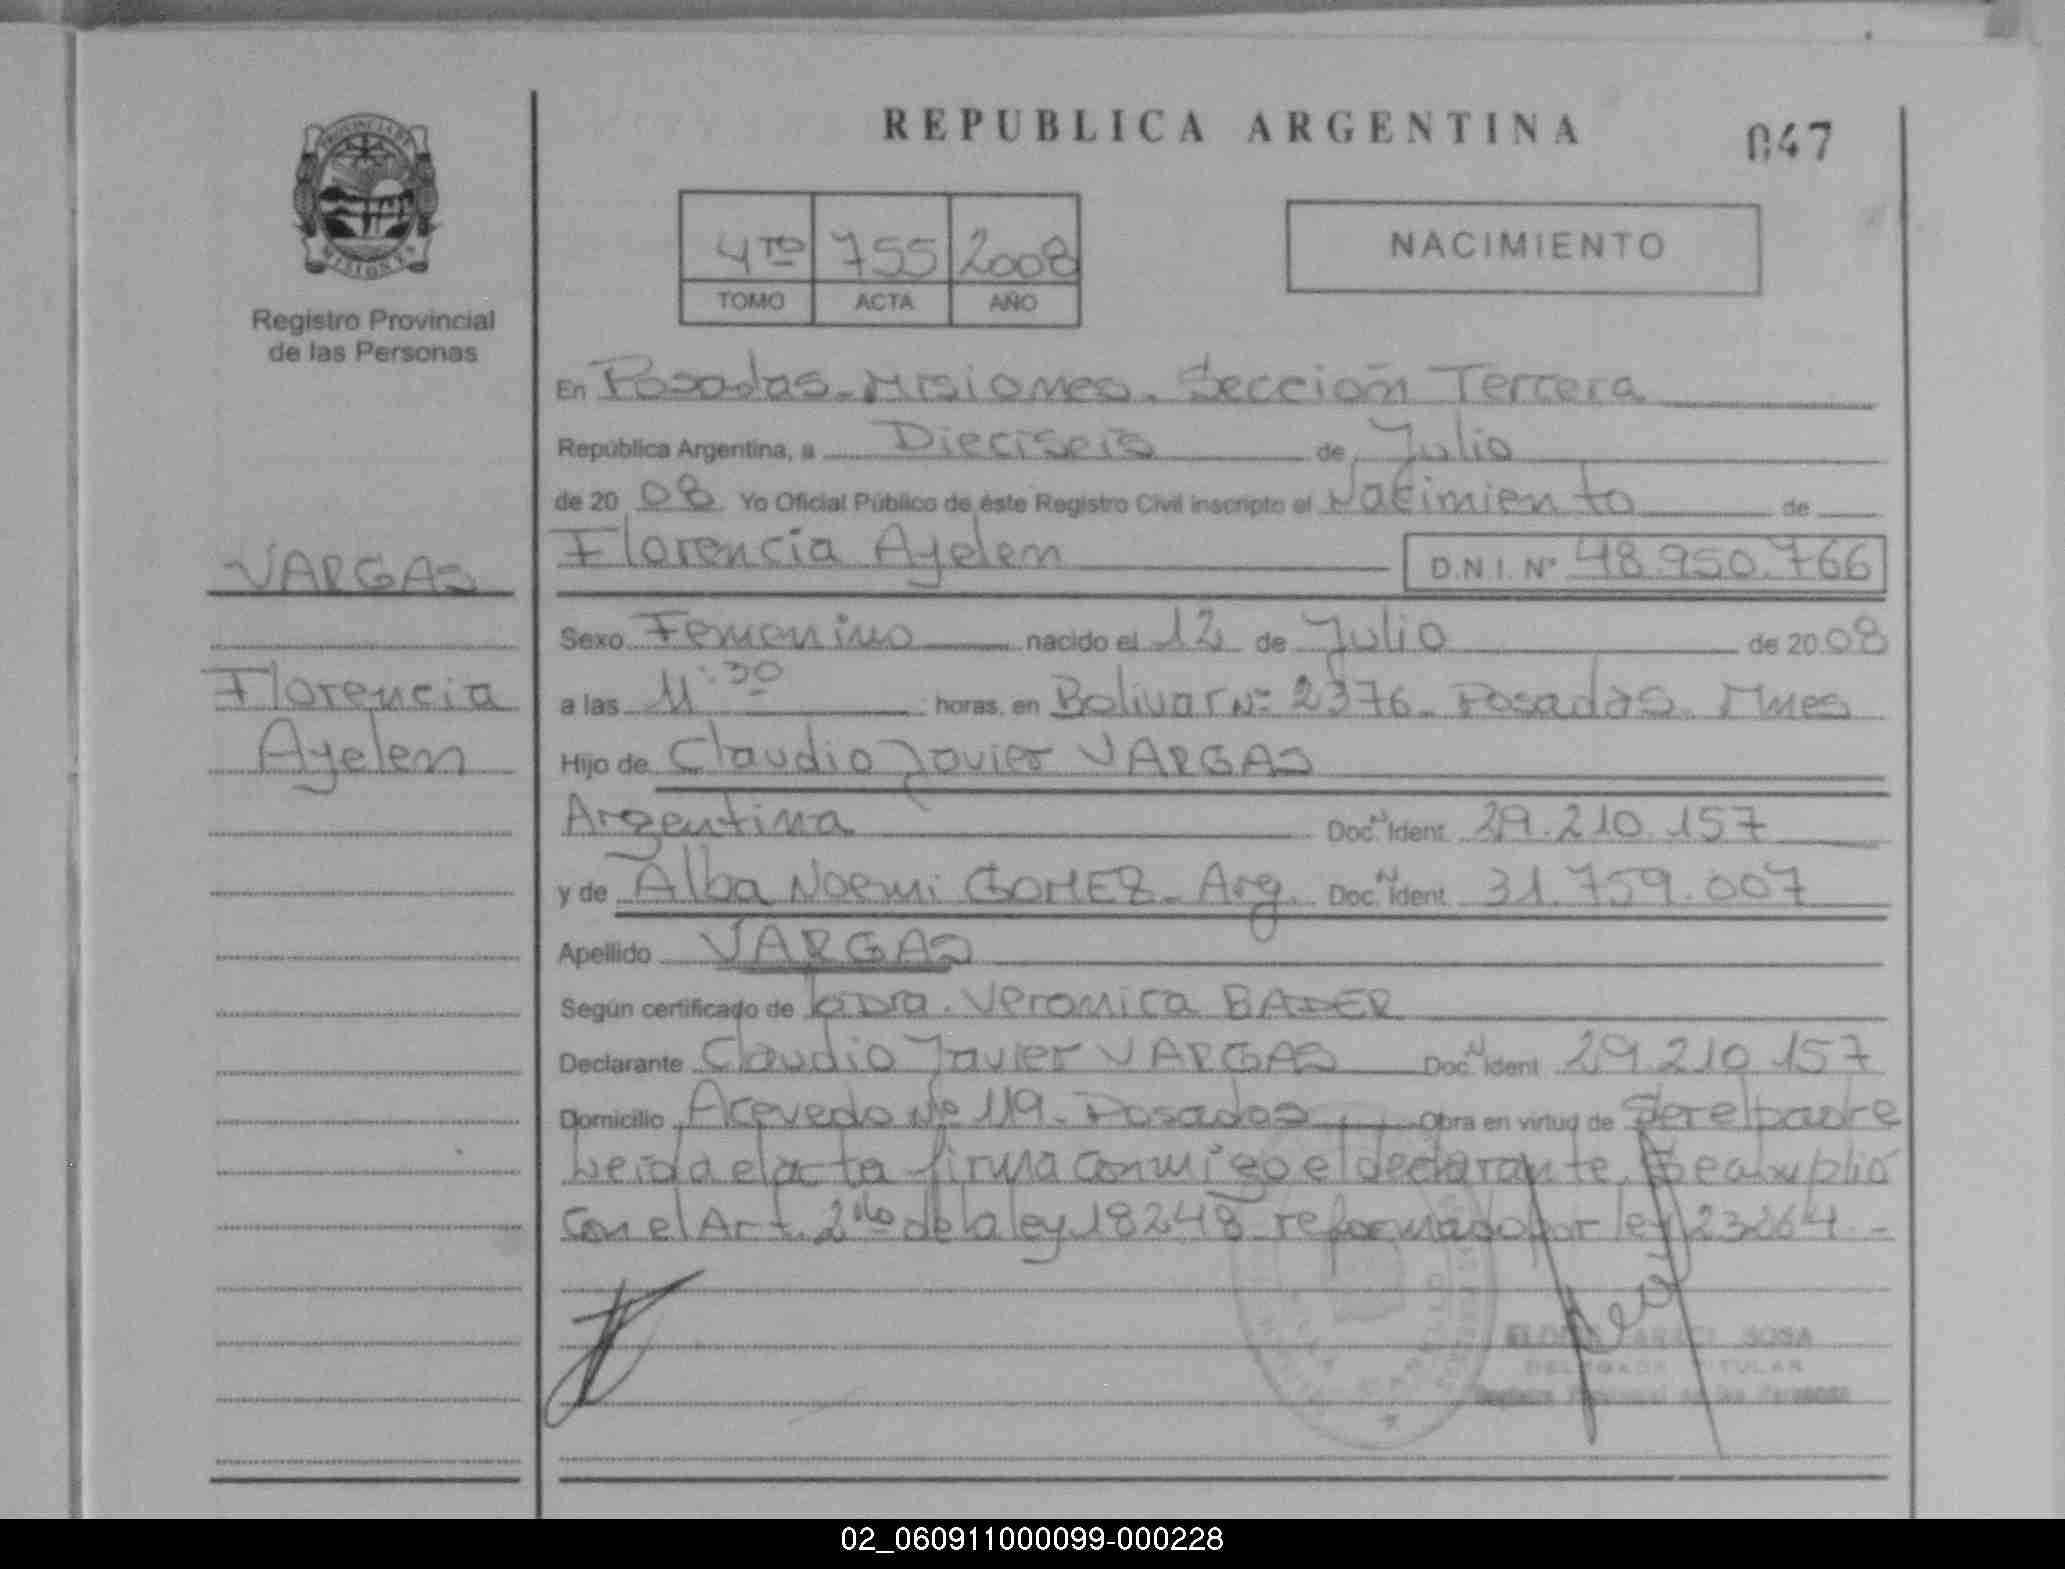 REPUBLICA ARGENTINA
047
PROVINCIA DE
MISIONES
Registro Provincial
de las Personas
4to 755 2008
TOMO ACTA AÑO
NACIMIENTO
En Posadas - Misiones. Sección Tercera
República Argentina, a Dieciseis de Julio
de 20 08 Yo Oficial Público de éste Registro Civil inscripto el Nacimiento de
Florencia Ayelen D.N.I. Nº 48.950.766
VARGAS
Florencia
Ayelen
Sexo Femenino nacido el 12 de Julio de 20 08
a las 11:30 horas, en Bolivar Nº 2376 - Posadas - Mnes
Hijo de Claudio Javier VARGAS
Argentina Doc. N Ident. 29.210.157
y de Alba Noemi GOMEZ - Arg. Doc. N Ident. 31.759.007
Apellido VARGAS
Según certificado de la Dra. Veronica BADER
Declarante Claudio Javier VARGAS Doc. N Ident. 29.210.157
Domicilio Acevedo Nº 119 - Posadas Obra en virtud de ser el padre
Leida el acta firma conmigo el declarante. Se cumplió
con el Art. 2do de la ley 18248 reformado por ley 23264.-
SOSA
TITULAR
Registro Provincial de las Personas
02_060911000099-000228